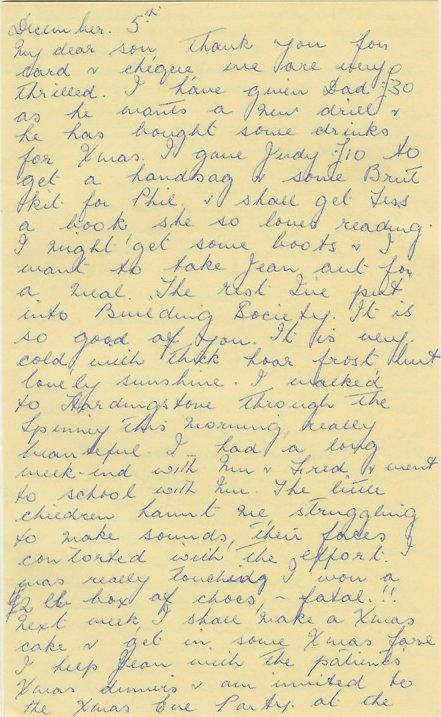 December. 5th
My dear son, thank you for
card & cheque, we are very
thrilled. I have given Dad £30
as he wants a new drill &
he has bought some drinks
for Xmas, I gave Judy £10 to
get a handbag & some Brut
kit for Phil, & shall get Tess
a book, she so loves reading.
I might get some boots & I
want to take Jean out for
a meal. The rest I've put
into Building Society. It is
so good of you. It is very
cold with thick hoar frost, but
lovely sunshine. I walked
to Hardingstone through the
Spinney this morning, really
beautiful. I had a long
week-end with & Fred & went
to school with. The little
children haunt me struggling
to make sounds, their faces
contorted with the effort. I
was really touched. I won a
1/2 lb box of chocs, - fatal.!!
Next week I shall make a Xmas
cake & get in some Xmas fare
I help Jean with the patients
Xmas dinners & am invited to
the Xmas Eve Party. at the